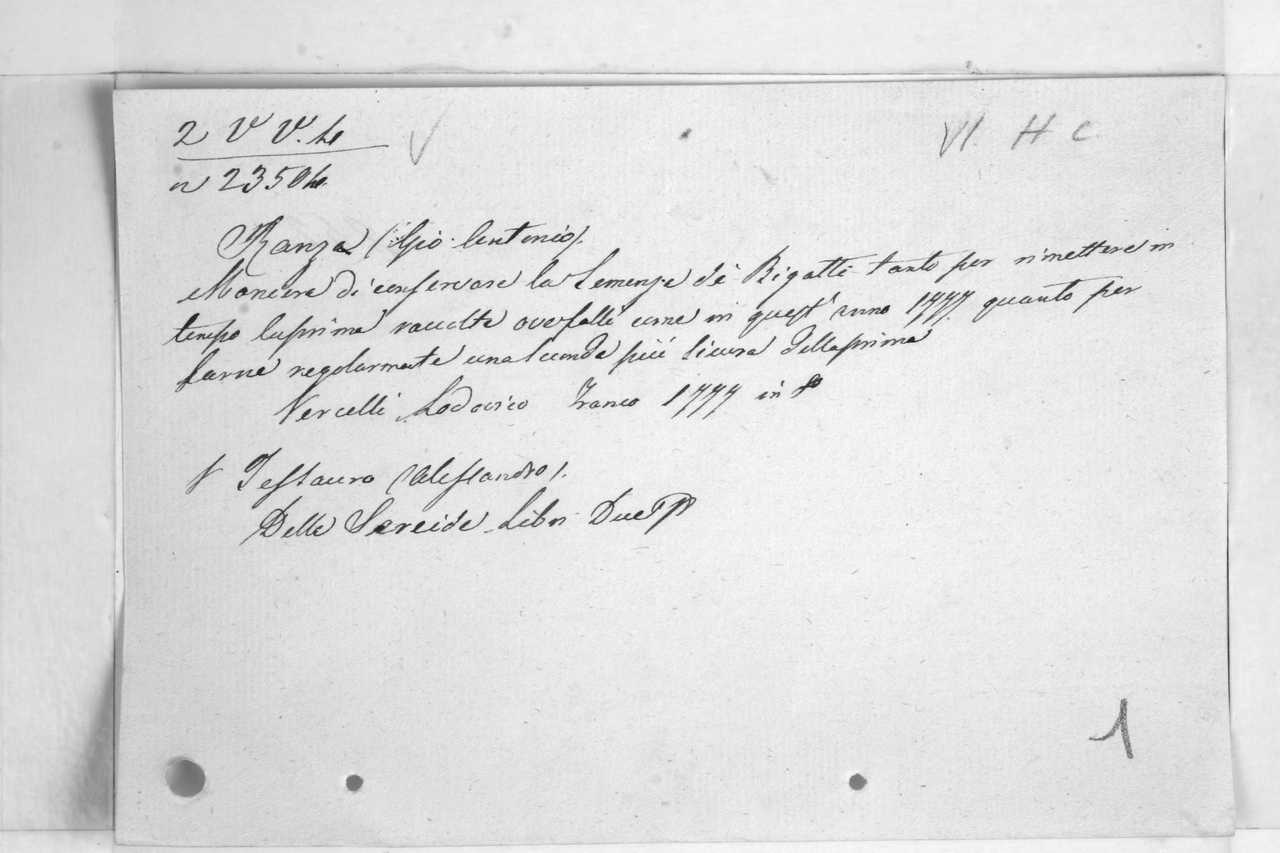 2 V V. 4
VI. H C
n 23504
Ranza (Gio: Antonio).
Maniera di conservare la Semenza de' Bigatti tanto per rimettere in
tempo la prima raccolta ove falli come in quest' anno 1777 quanto per
farne regolarmente una seconda più sicura della prima
Vercelli Lodovico Franco 1777 in 8º
Tessauro (Alessandro).
Della Sereide Libri Due
1